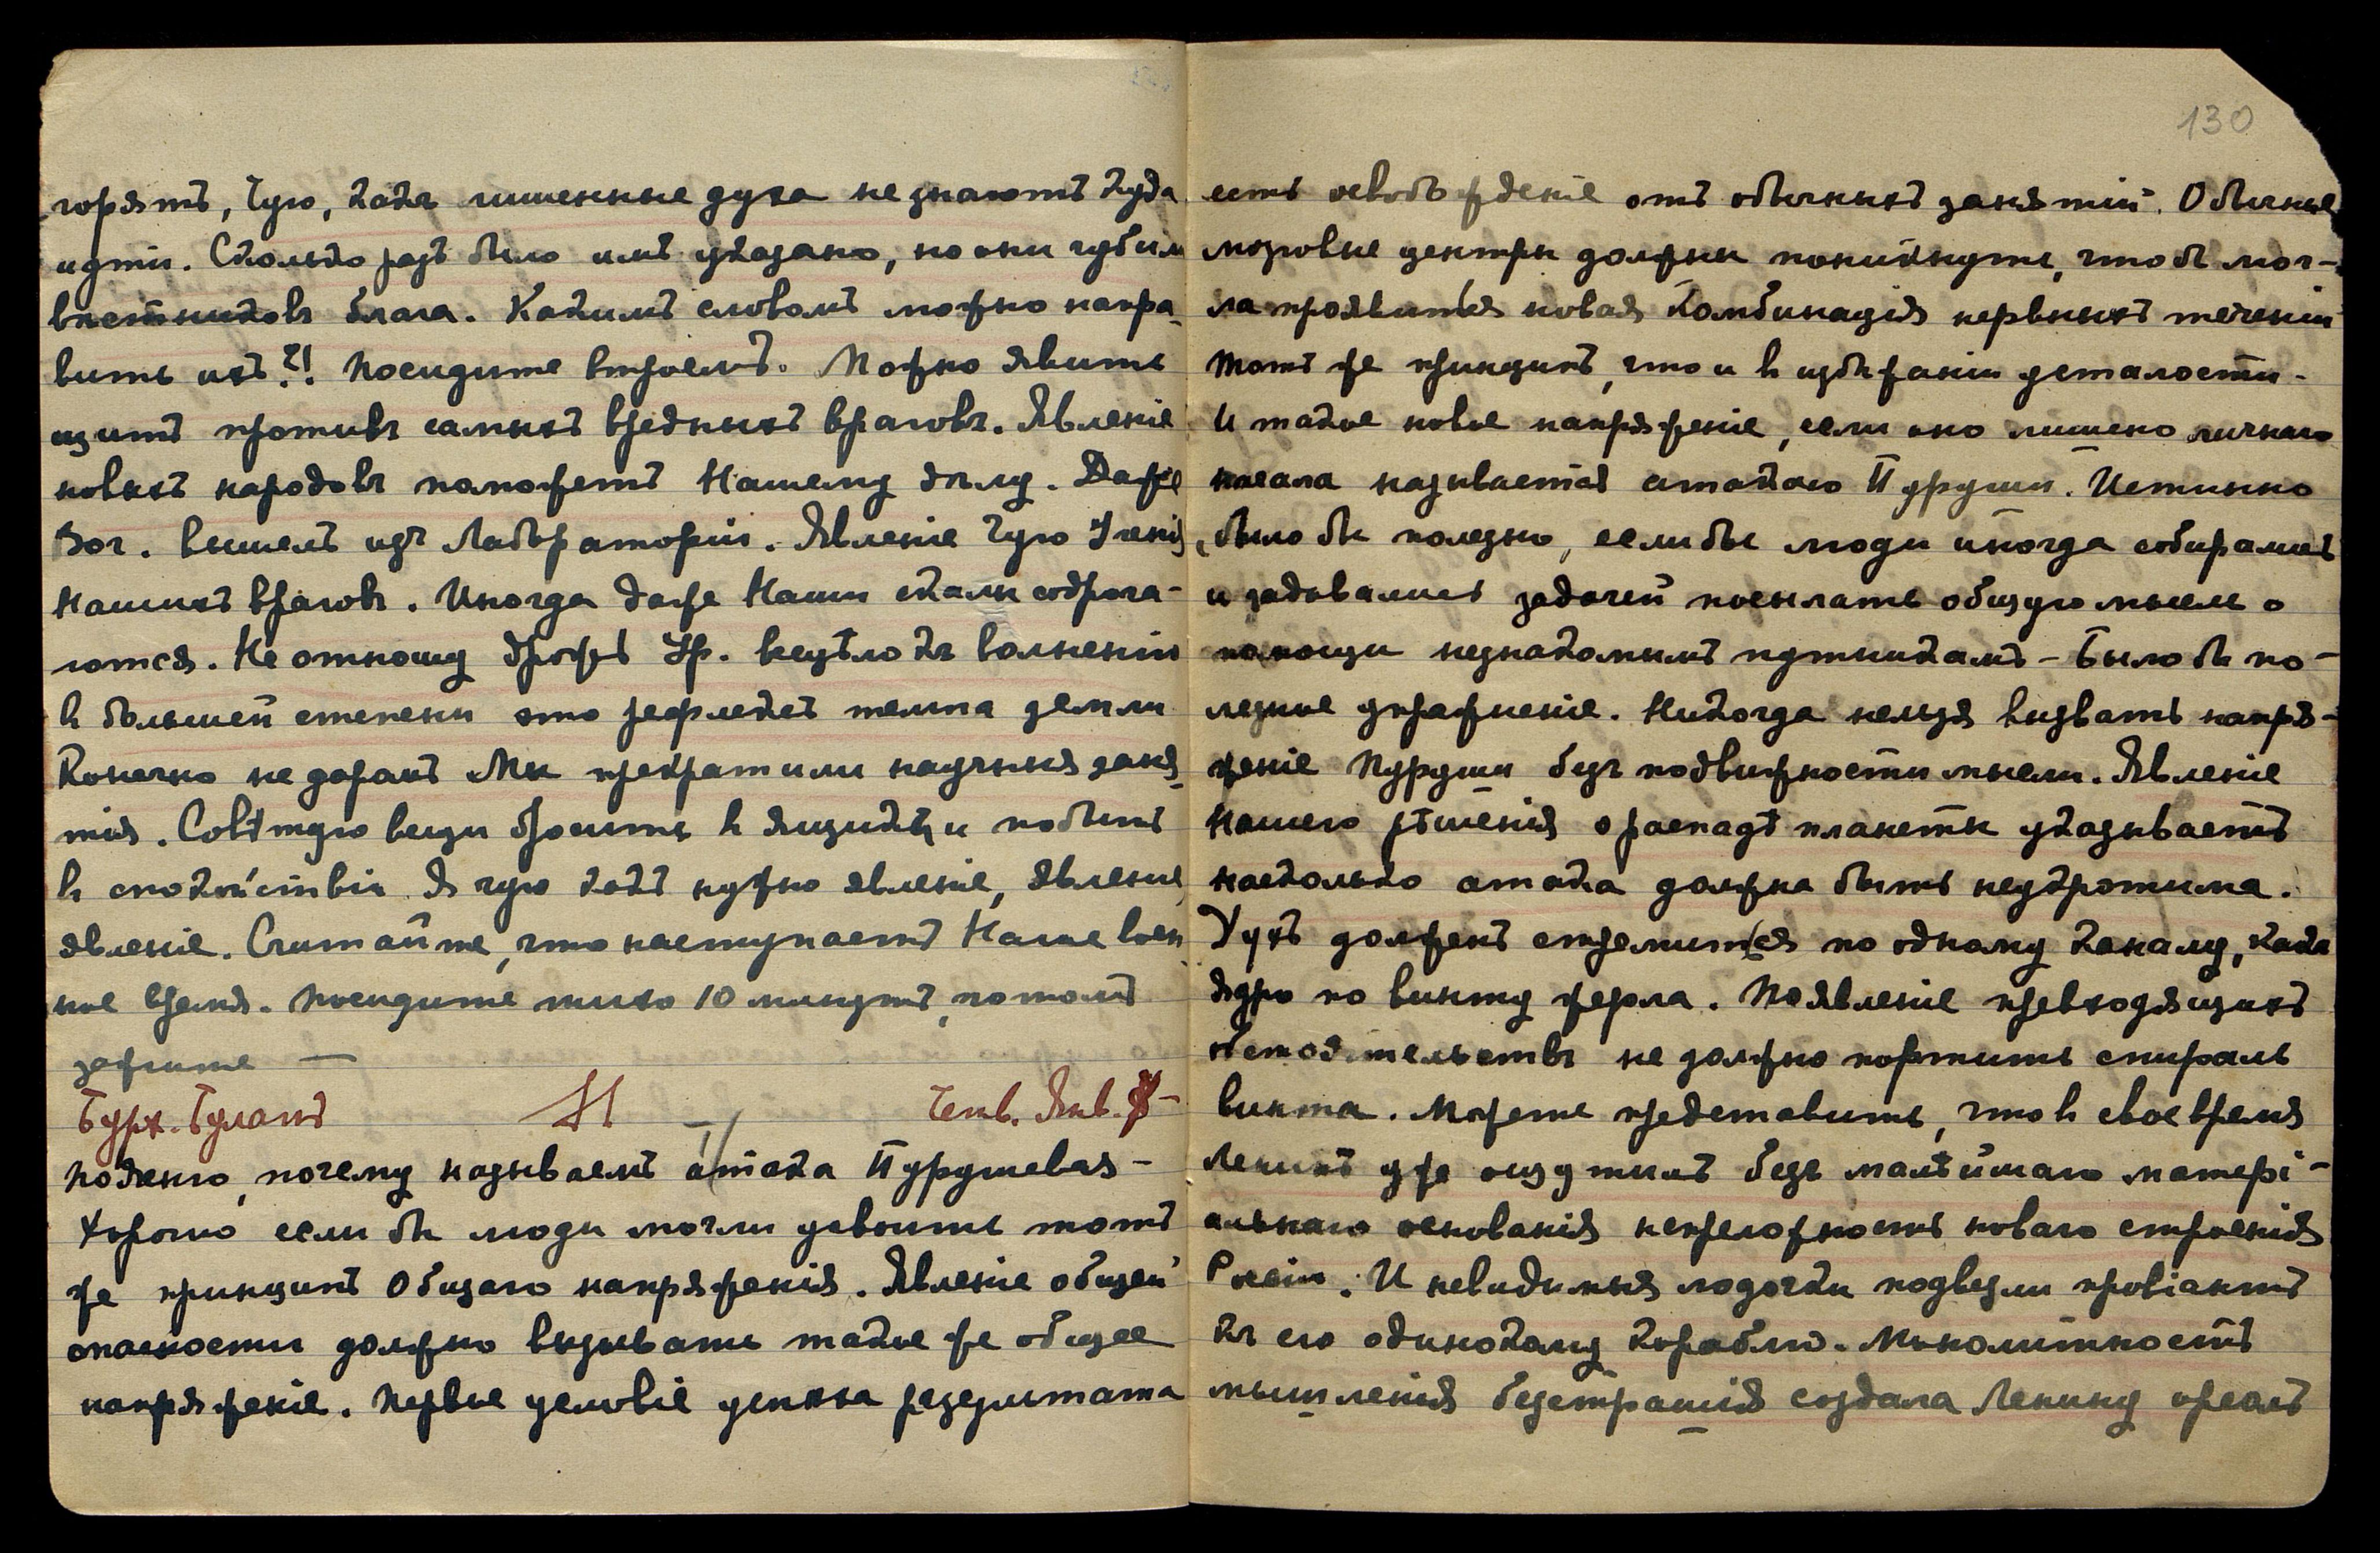 горятъ, Чую, какъ лишенные духа не знаютъ куда
идти. Сколько разъ было имъ указано, но они губили
вѣстниковъ блага. Какимъ словомъ можно напра-
вить ихъ?! Посидите втроемъ. Можно явить
щитъ противъ самыхъ вредныхъ враговъ. Явленіе
новыхъ народовъ поможетъ Нашему дѣлу. Даже
Вог. вышелъ изъ Лабораторіи. Явленіе Чую
Нашихъ враговъ. Иногда даже Наши скалы содрога-
ются. Не отношу дрожь Ур. всецѣло къ волненію
въ большей степени это рефлексъ темпа земли
Конечно не доромъ Мы прекратили научныя заня-
тія. Совѣтую вещи бросить въ ящики и побыть
въ спокойствіи Я чую какъ нужно явленіе, явленіе,
явленіе. Считайте, что наступаетъ Наше воен
ное время. Посидите тихо 10 минутъ, потомъ
зажгите —
Бурх. Буланъ Н Четв. Янв. 8-
Поясню, почему называемъ атака Пурушевая -
Хорошо если бы люди могли усвоить тотъ
же принципъ Общаго напряженія. Явленіе общей
опасности должно вызывать такое же общее
напряженіе. Первое условіе успѣха результата
130
есть освобожденіе отъ обычныхъ занятій. Обычные
мозговые центры должны поникнуть, чтобъ мог-
ла проявиться новая комбинація нервныхъ теченій
Тотъ же принципъ, что и въ избѣжаніи усталости.
И такое новое напряженіе, если оно лишено личнаго
начала называется атакою Пуруши. Истинно
было бы полезно, если бы люди иногда собирались
и задавались задачей посылать общую мысль о
помощи незнакомымъ путникамъ - Было бы по-
лезное упражненіе. Никогда нельзя вызвать напря-
женіе Пуруши безъ подвижности мысли. Явленіе
Нашего рѣшенія о распадѣ планеты указываетъ
насколько атака должна быть неукротима.
Духъ долженъ стремиться по одному каналу, какъ
ядро по винту жерла. Появленіе превходящихъ
обстоятельствъ не должно портить спираль
винта. Можете представить, что въ свое время
Ленинъ уже ощутилъ безъ малѣйшаго матері-
альнаго основанія непреложность новаго строенія
Россіи. И невидимыя лодочки подвезли провіантъ
къ его одинокому кораблю. Монолитность
мышленія безстрашія создала Ленину ореолъ